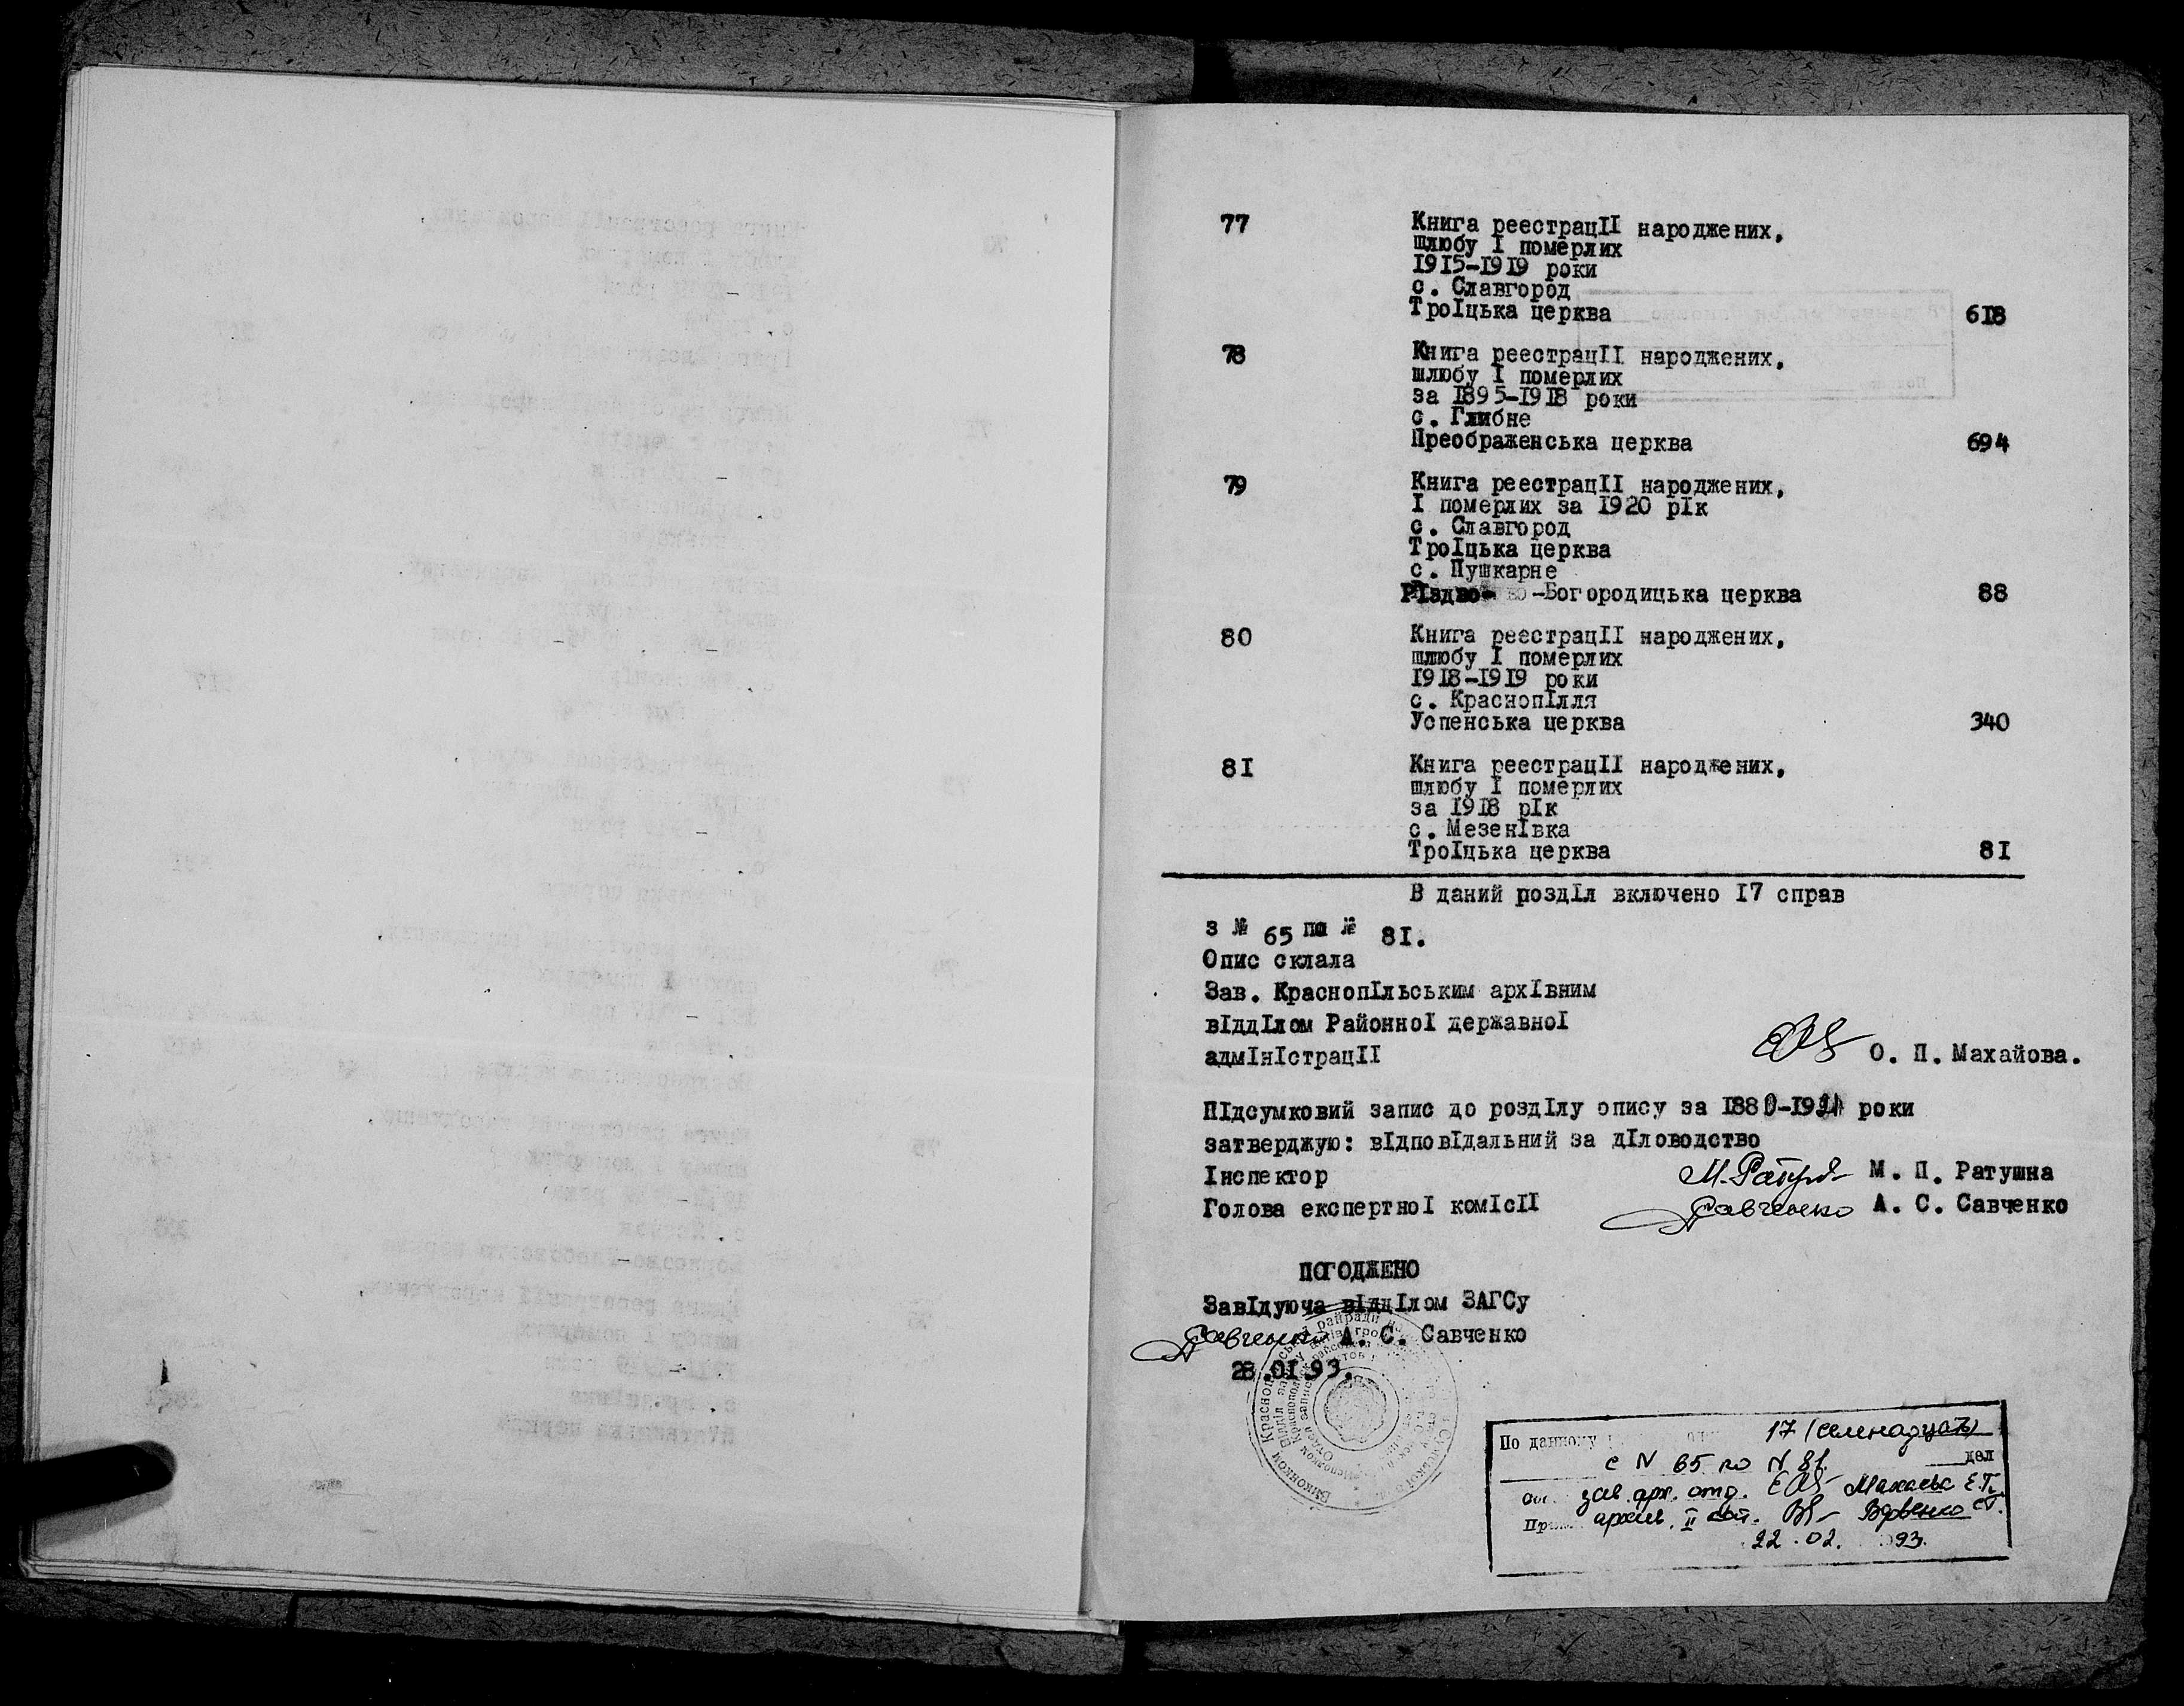 77
Книга реестрацІІ народжених,
шлюбу І померлих
І9І5-І9І9 роки
с. Славгород
ТроІцька церква 6І8
78
Книга реестрацІІ народжених,
шлюбу І померлих
за І895-І9І8 роки
с. Глибне
Преображенська церква 694
79
Книга реестрацІІ народжених,
І померлих за І920 рІк
с. Славгород
ТроІцька церква
с. Пушкарне
РІздво- -Богородицька церква 88
80
Книга реестрацІІ народжених,
шлюбу І померлих
І9І8-І9І9 роки
с. КраснопІлля
Успенська церква 340
8І
Книга реестрацІІ народжених,
шлюбу І померлих
за І9І8 рІк
с. МезенІвка
ТроІцька церква 8І
В даний роздІл включено І7 справ
з № 65 по № 8І.
Опис склала
Зав. КраснопІльським архІвним
вІддІлом РайонноІ державноІ
адмІнІстрацІІ О. П. Махайова.
ПІдсумковий запис до роздІлу опису за роки
затверджую: вІдповІдальний за дІловодство
Інспектор М. П. Ратушна
Голова експертноІ комІсІІ Савченко А. С. Савченко
ПОГОДЖЕНО
ЗавІдуюча вІддІлом ЗАГСу
Савченко А. С. Савченко
28.0І.93.
По данному 17 (семнадцать)
с N 65 по N 81. дел
зав. арх. отд. Е.П.
II кат.
22.02. 93.